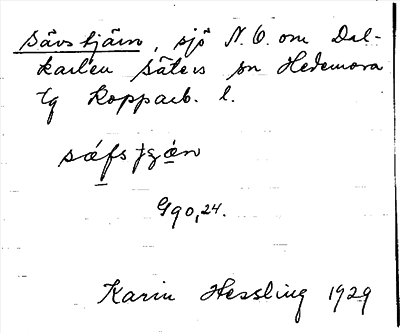 Sävstjärn, sjö N.O. om Dal-
karlen Säters sn Hedemora
tg Kopparb. l.
sáfstzän
G90,24.
Karin Hessling 1929